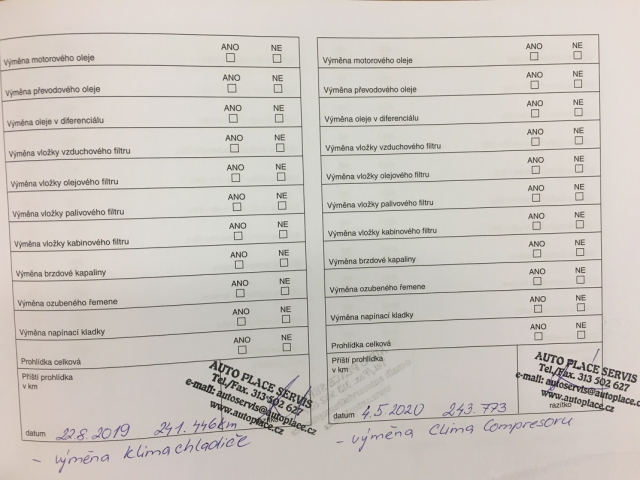 ANO NE
Výměna motorového oleje
ANO NE
Výměna převodového oleje
ANO NE
Výměna oleje v diferenciálu
ANO NE
Výměna vložky vzduchového filtru
ANO NE
Výměna vložky olejového filtru
ANO NE
Výměna vložky palivového filtru
ANO NE
Výměna vložky kabinového filtru
ANO NE
Výměna brzdové kapaliny
ANO NE
Výměna ozubeného řemene
ANO NE
Výměna napínací kladky
ANO NE
Prohlídka celková
Příští prohlídka
v km
AUTO PLACE SERVIS
Tel./Fax. 313 502 627
e-mail: autoservis@autoplace.cz
www.autoplace.cz
datum 22.8.2019 241.446km
- výměna klimachladiče
ANO NE
Výměna motorového oleje
ANO NE
Výměna převodového oleje
ANO NE
Výměna oleje v diferenciálu
ANO NE
Výměna vložky vzduchového filtru
ANO NE
Výměna vložky olejového filtru
ANO NE
Výměna vložky palivového filtru
ANO NE
Výměna vložky kabinového filtru
ANO NE
Výměna brzdové kapaliny
ANO NE
Výměna ozubeného řemene
ANO NE
Výměna napínací kladky
ANO NE
Prohlídka celková
Příští prohlídka
v km
AUTO PLACE SERVIS
Tel./Fax. 313 502 627
e-mail: autoservis@autoplace.cz
www.autoplace.cz
datum 4.5.2020 243.773
razítko
- výměna Clima Compresoru